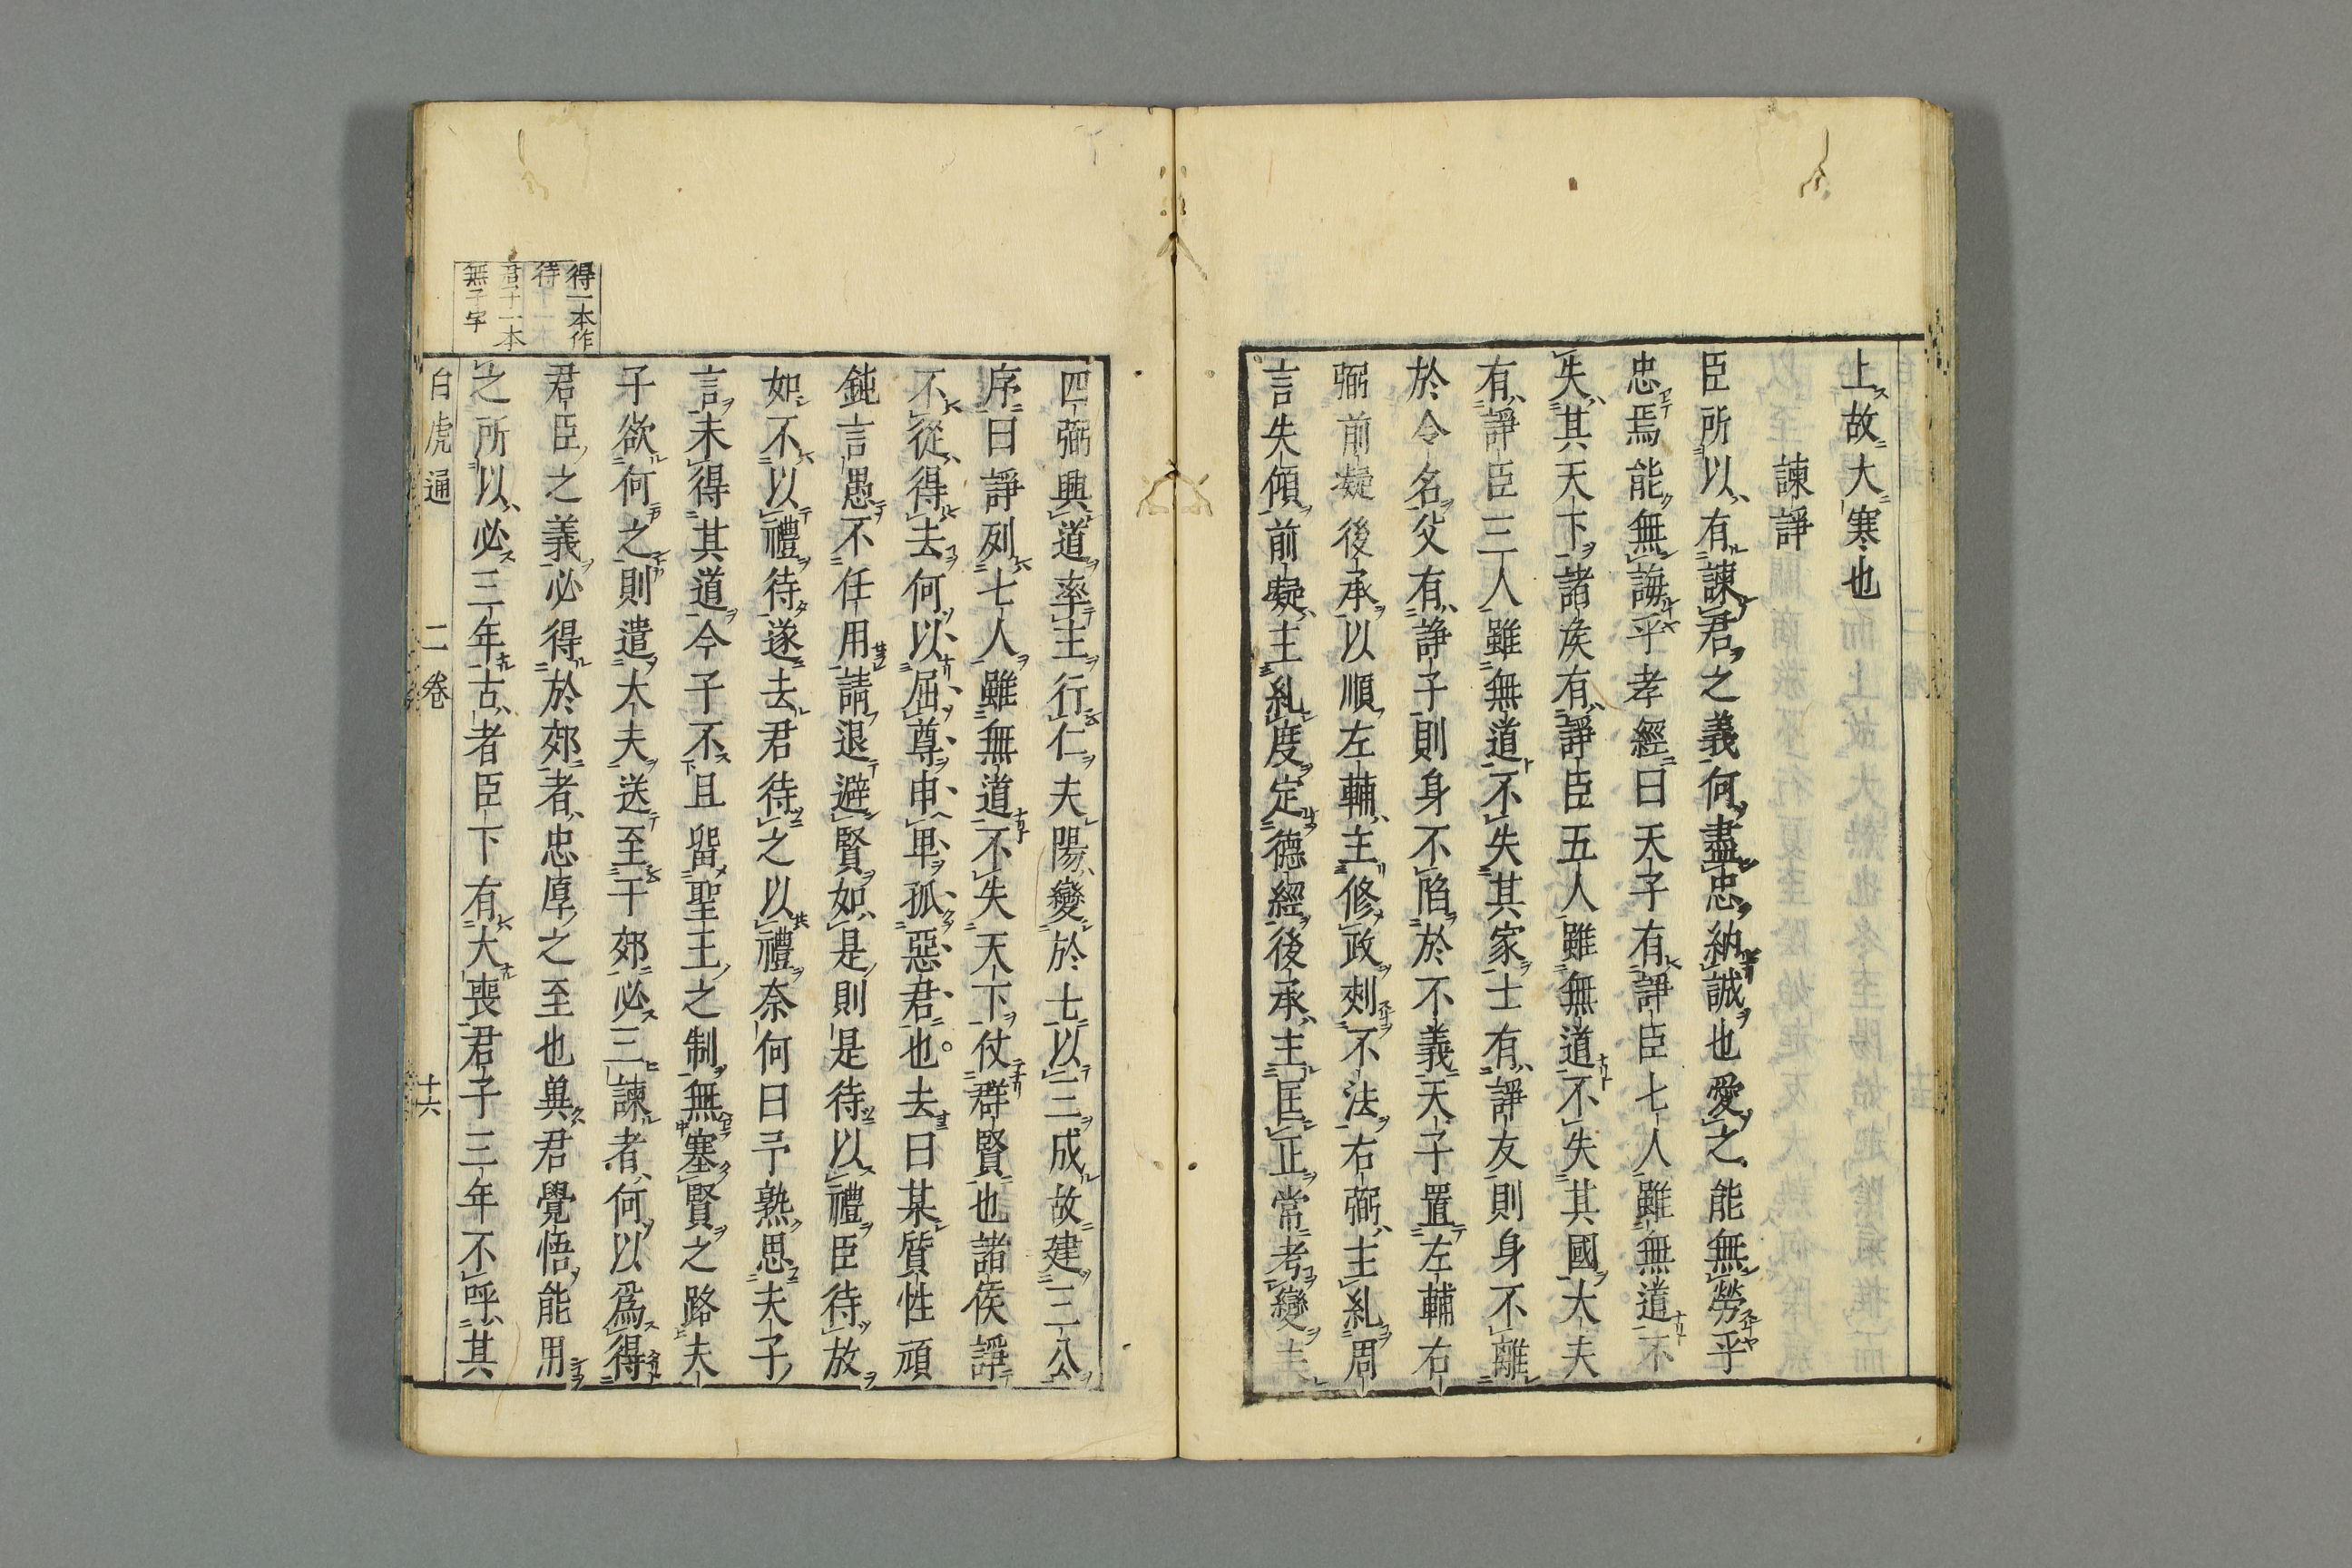 上故大寒也
諫諍
臣所以有諫君之義何盡忠納誠也愛之能無勞乎
忠焉能無誨乎孝經曰天子有諍臣七人雖無道不
失其天下諸矦有諍臣五人雖無道不失其國大夫
有諍臣三人雖無道不失其家士有諍友則身不離
於令名父有諍子則身不陷於不義天子置左輔右
弼前凝後承以順左輔主修政刺不法右弼主糺周
言失傾前凝主糺度定德經後承主匡正常考變夫
四弼興道率主行仁夫陽變於七以三成故建三公
序曰諍列七人雖無道不失天下仗群賢也諸矦諍
不從得去何以屈尊申卑孤惡君也。去曰某質性頑
鈍言愚不任用請退避賢如是則是待以禮臣待放
如不以禮待遂去君待之以禮奈何曰予熟思夫子
言未得其道今子不且留聖王之制無塞賢之路夫
子欲何之則遣大夫送至于郊必三諫者何以爲得
君臣之義必得於郊者忠厚之至也兾君覺悟能用
之所以必三年古者臣下有大喪君子三年不呼其
白虎通 二卷 十六
得一本作
待
君子一本
無子字